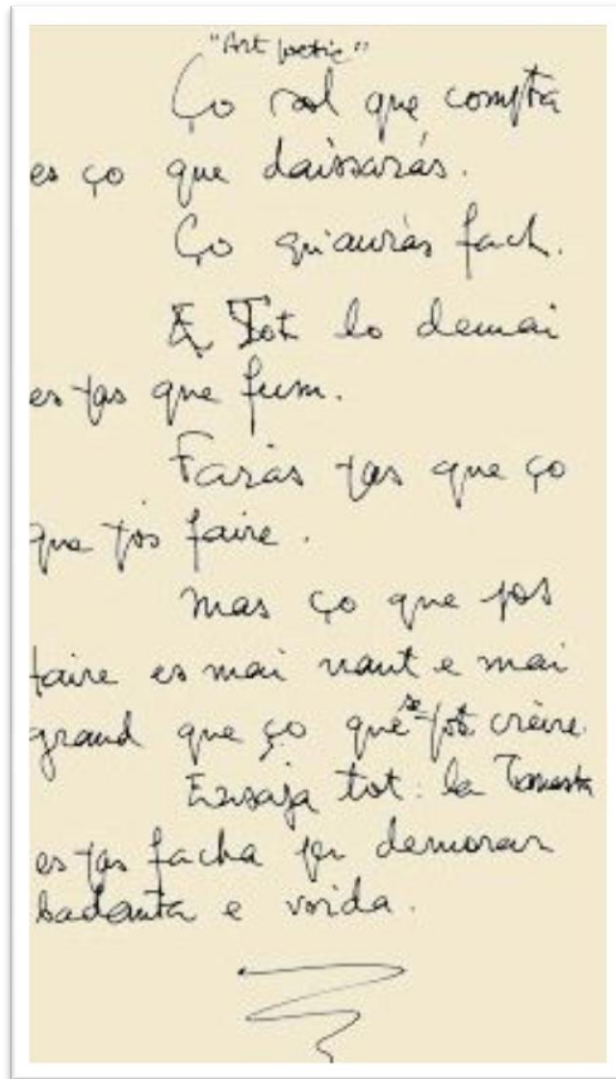 "Art poetic"
Ço sol que compta
es ço que daissaràs.
Ço qu'auràs fach.
E Tot lo demai
es pas que fum.
Faràs pas que ço
que pòs faire.
mas ço que pos
faire es mai naut e mai
grand que ço que se pòt crèire.
Ensaja tot: la
es pas facha per demorar
badanta e voida.